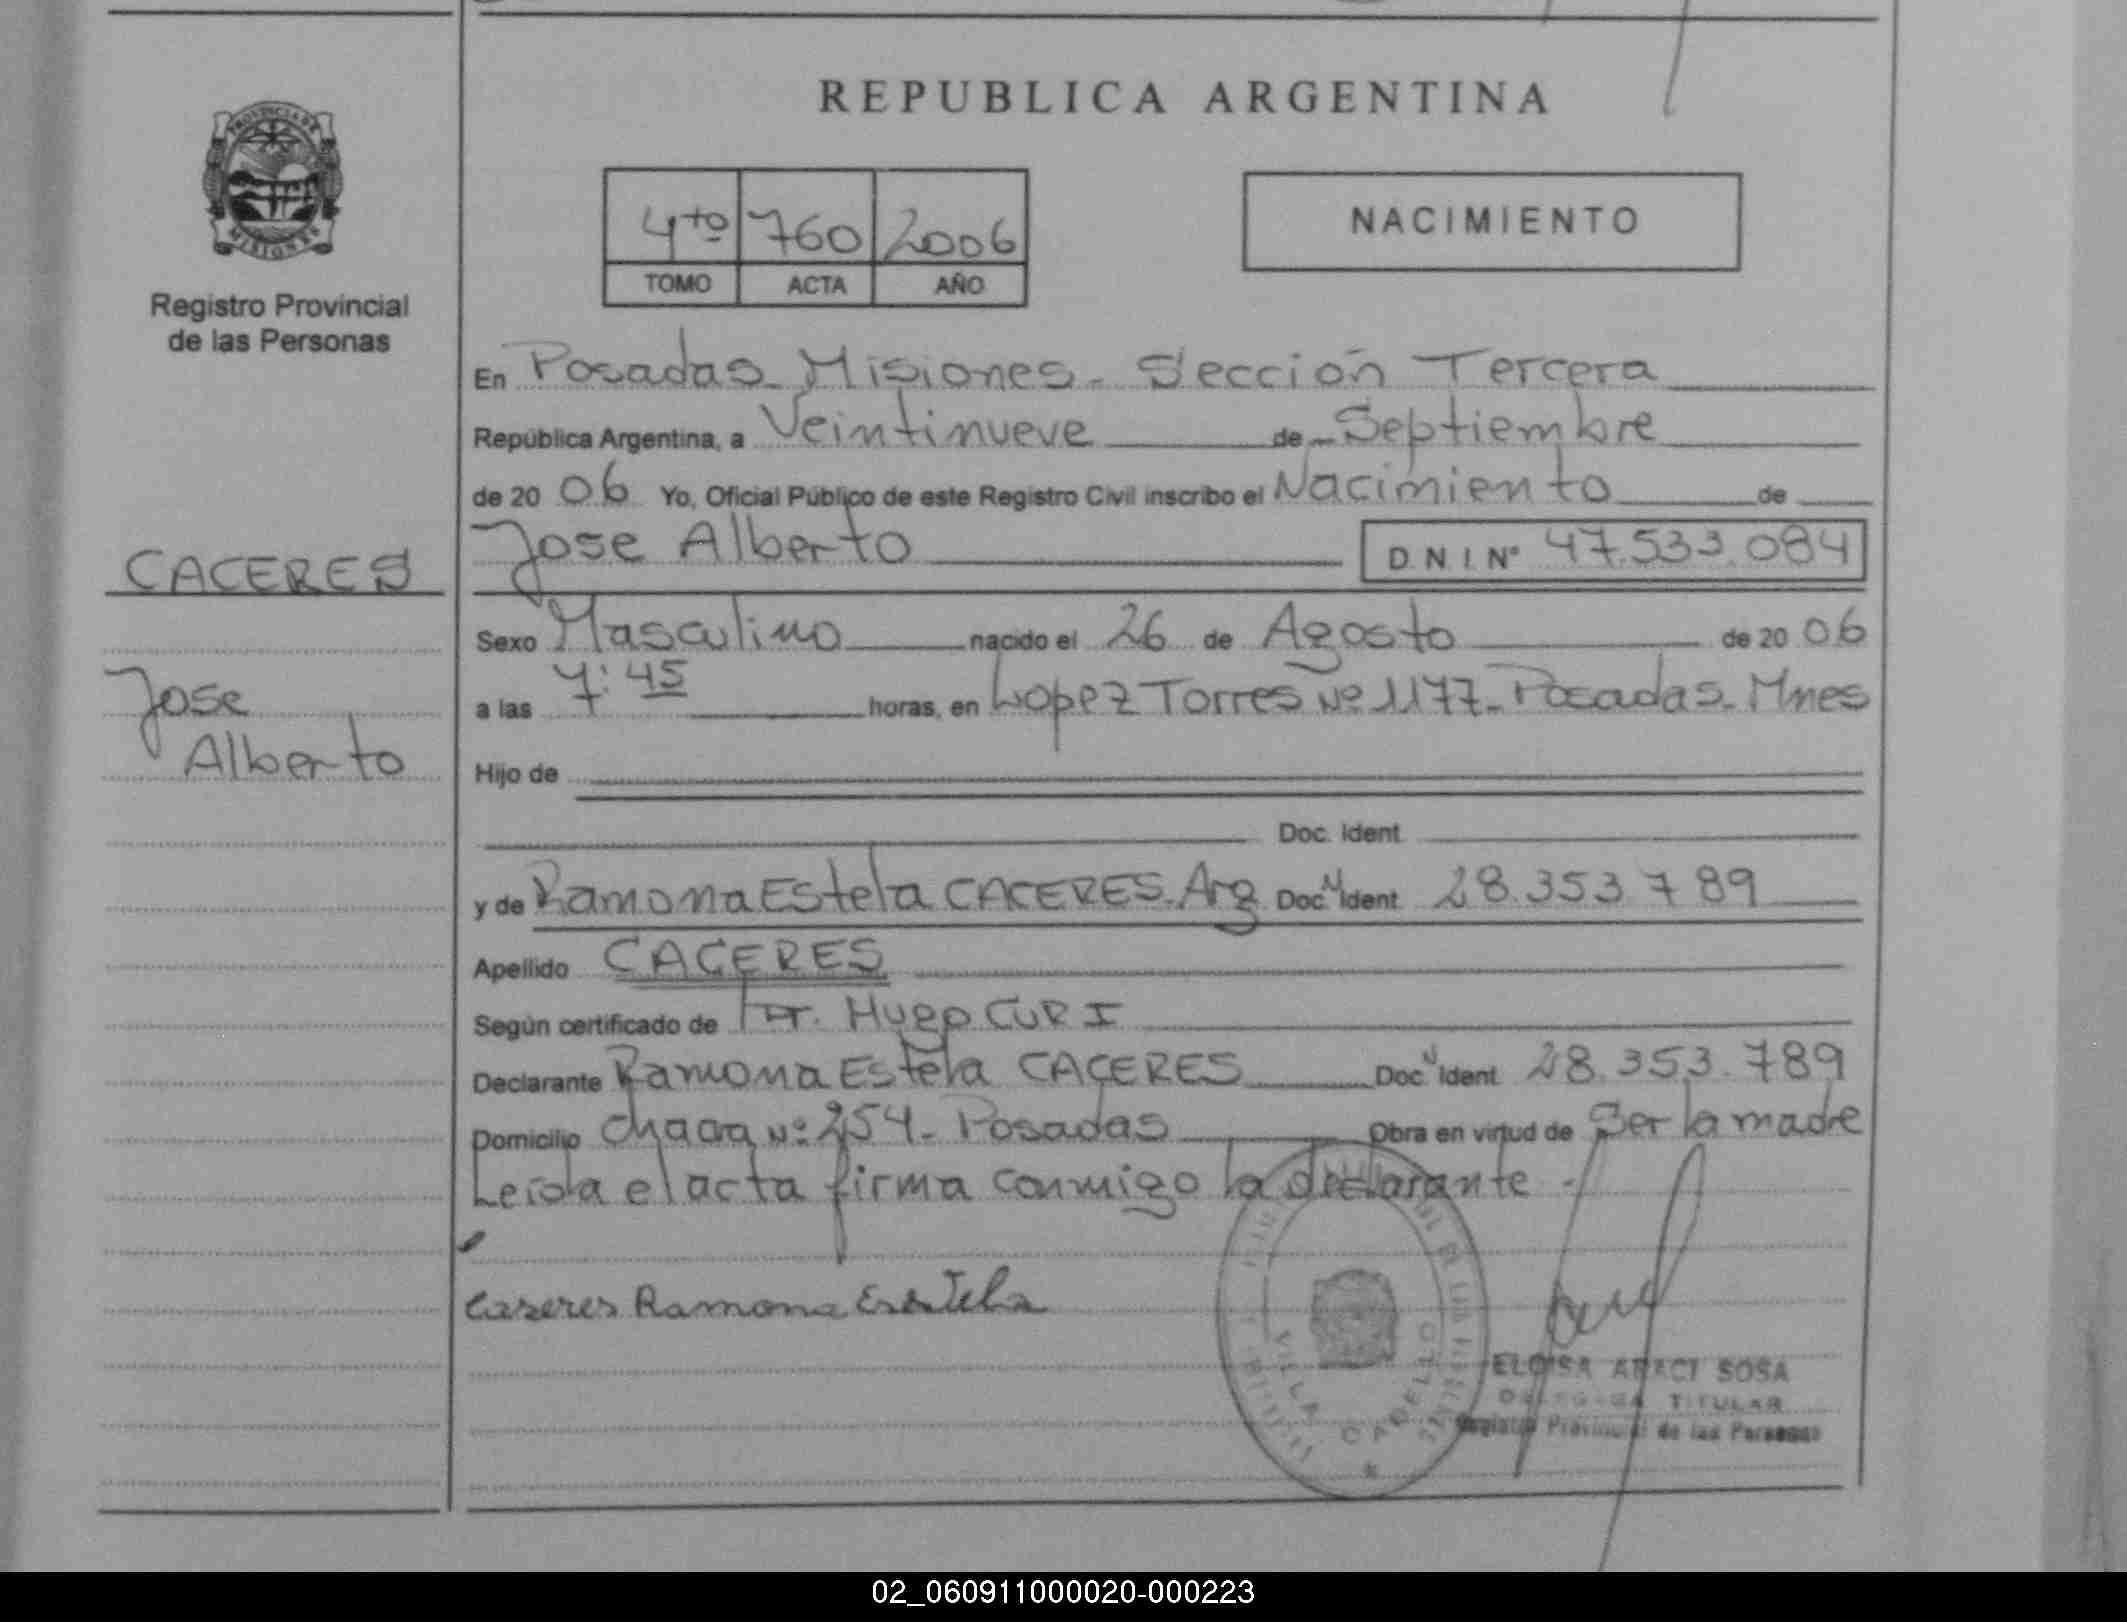 REPUBLICA ARGENTINA
PROVINCIA DE
MISIONES
Registro Provincial
de las Personas
4to 760 2006
TOMO ACTA AÑO
NACIMIENTO
En Posadas - Misiones - Sección Tercera
República Argentina, a Veintinueve de Septiembre
de 20 06 Yo, Oficial Público de este Registro Civil inscribo el Nacimiento de
Jose Alberto D.N.I. Nº 47.533.084
CACERES
Jose
Alberto
Sexo Masculino nacido el 26 de Agosto de 20 06
a las 7:45 horas, en Lopez Torres Nº 1177 - Posadas - Mnes
Hijo de
Doc. Ident.
y de Ramona Estela CACERES. Arg Doc. N Ident. 28.353.789
Apellido CACERES
Según certificado de Dr. Hugo CURI
Declarante Ramona Estela CACERES Doc. N Ident. 28.353.789
Domicilio Chacra Nº 254 - Posadas Obra en virtud de Ser la madre
Leída el acta firma conmigo la declarante -
Caseres Ramona Estela
VILLA CABELLO
ELOISA ARACI SOSA
DELEGADA TITULAR
Registro Provincial de las Personas
02_060911000020-000223